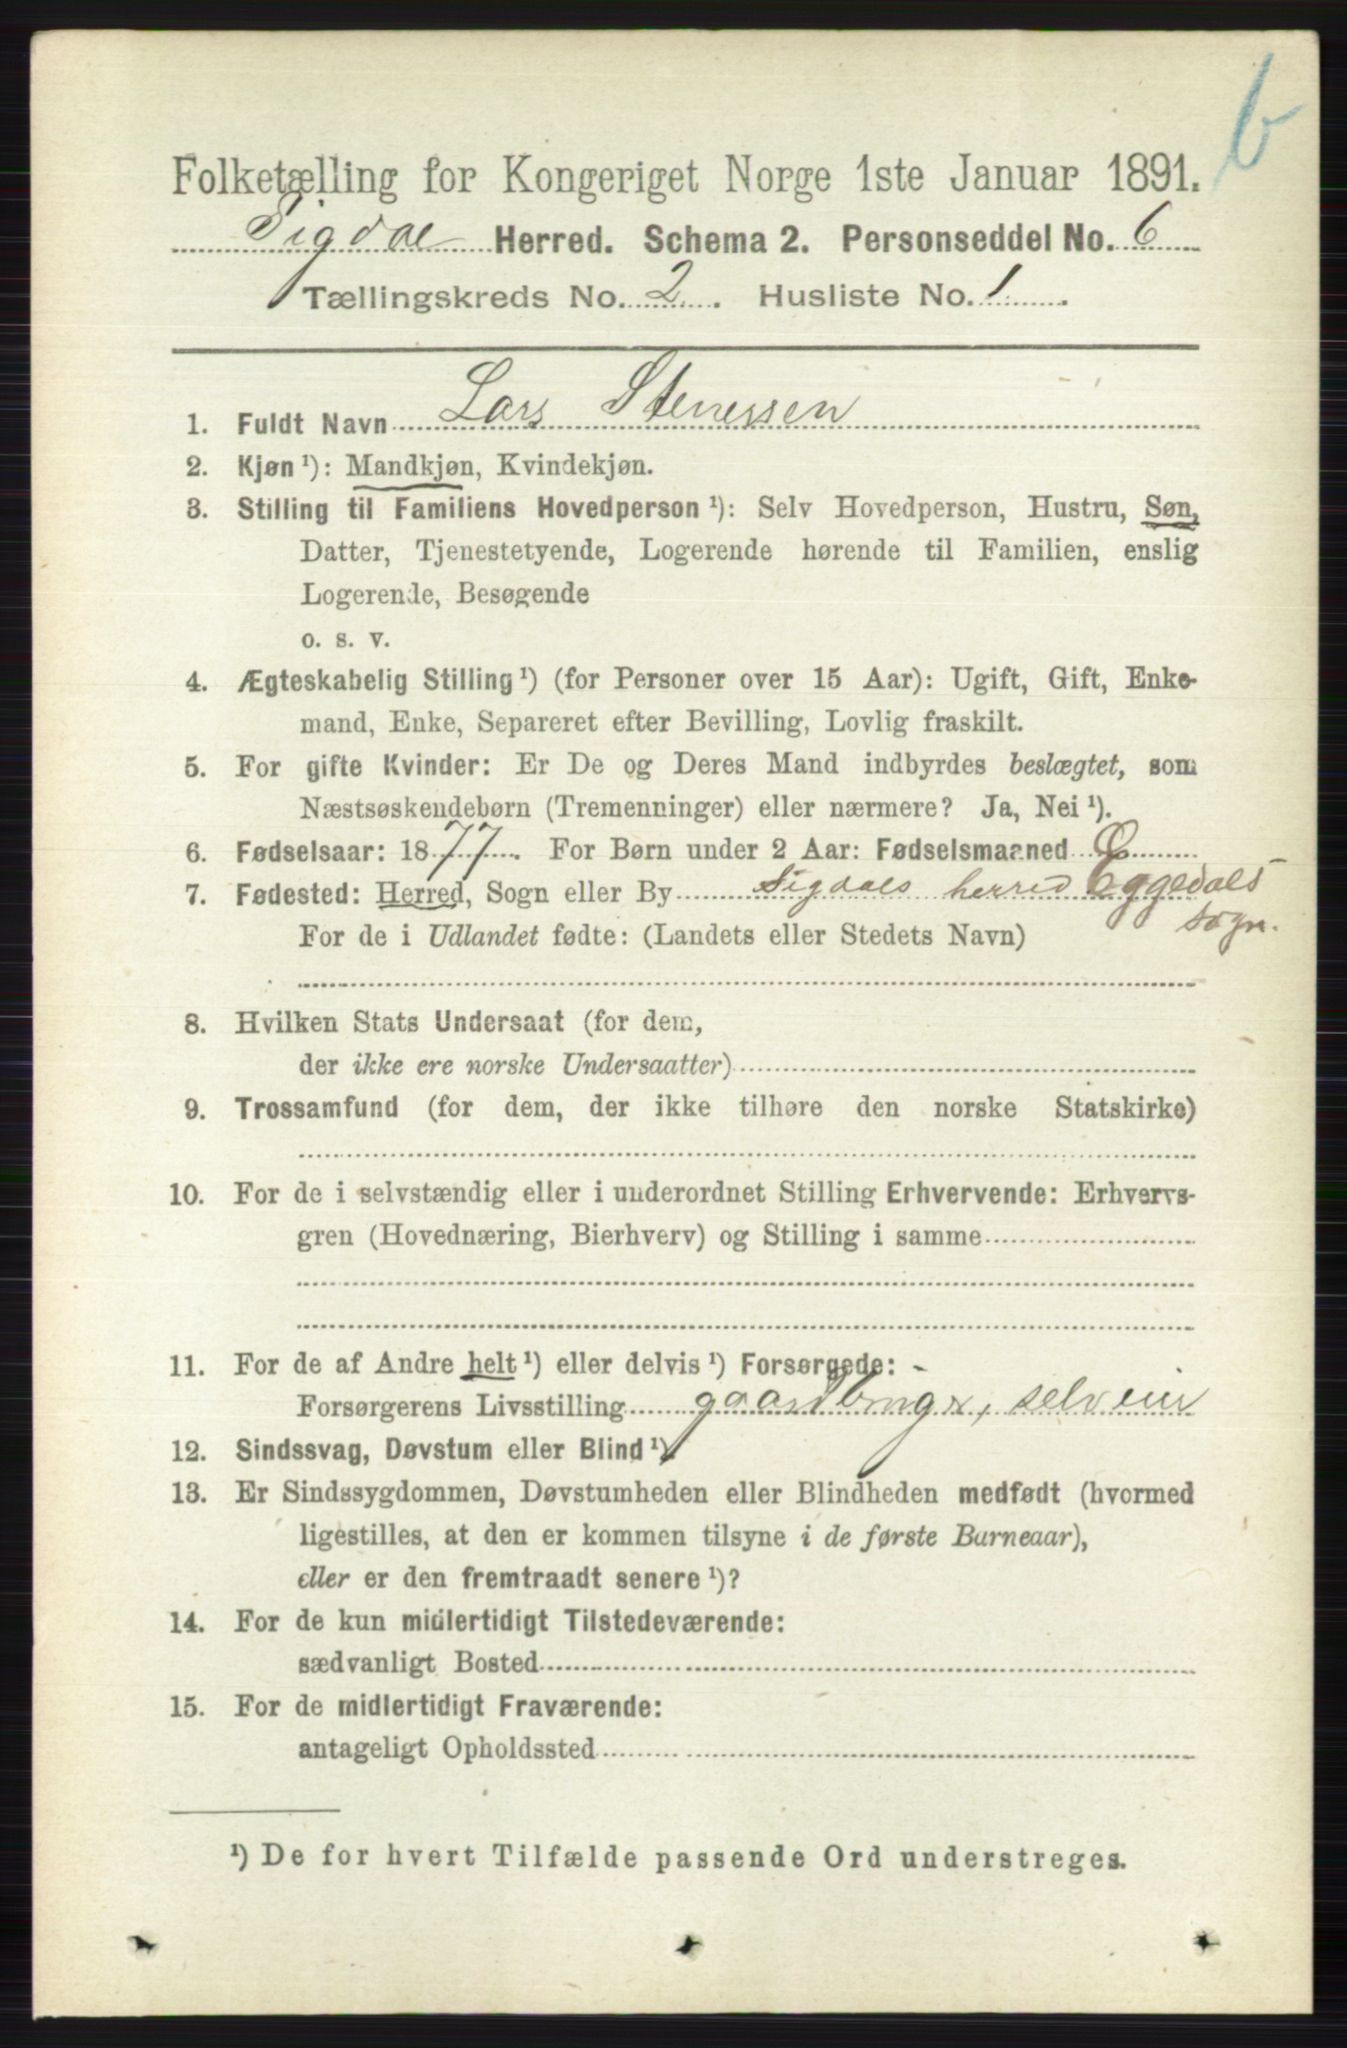 b
Folketælling for Kongeriget Norge 1ste Januar 1891.
Sigdal Herred. Schema 2. Personseddel No. 6
Tællingskreds No. 2. Husliste No. 1.
1. Fuldt Navn Lars Stenersen
2. Kjøn ¹): Mandkjøn, Kvindekjøn.
3. Stilling til Familiens Hovedperson ¹): Selv Hovedperson, Hustru, Søn,
Datter, Tjenestetyende, Logerende hørende til Familien, enslig
Logerende, Besøgende
o. s. v.
4. Ægteskabelig Stilling ¹) (for Personer over 15 Aar): Ugift, Gift, Enke-
mand, Enke, Separeret efter Bevilling, Lovlig fraskilt.
5. For gifte Kvinder: Er De og Deres Mand indbyrdes beslægtet, som
Næstsøskendebørn (Tremenninger) eller nærmere? Ja, Nei ¹).
6. Fødselsaar: 1877. For Børn under 2 Aar: Fødselsmaaned
7. Fødested: Herred, Sogn eller By Sigdals herred Eggedals
sogn.
For de i Udlandet fødte: (Landets eller Stedets Navn)
8. Hvilken Stats Undersaat (for dem,
der ikke ere norske Undersaatter)
9. Trossamfund (for dem, der ikke tilhøre den norske Statskirke)
10. For de i selvstændig eller i underordnet Stilling Erhvervende: Erhvervs-
gren (Hovednæring, Bierhverv) og Stilling i samme
11. For de af Andre helt ¹) eller delvis ¹) Forsørgede:
Forsørgerens Livsstilling gaardbruger, selveier
12. Sindssvag, Døvstum eller Blind ¹).
13. Er Sindssygdommen, Døvstumheden eller Blindheden medfødt (hvormed
ligestilles, at den er kommen tilsyne i de første Barneaar),
eller er den fremtraadt senere ¹)?
14. For de kun midlertidigt Tilstedeværende:
sædvanligt Bosted
15. For de midlertidigt Fraværende:
antageligt Opholdssted
¹) De for hvert Tilfælde passende Ord understreges.